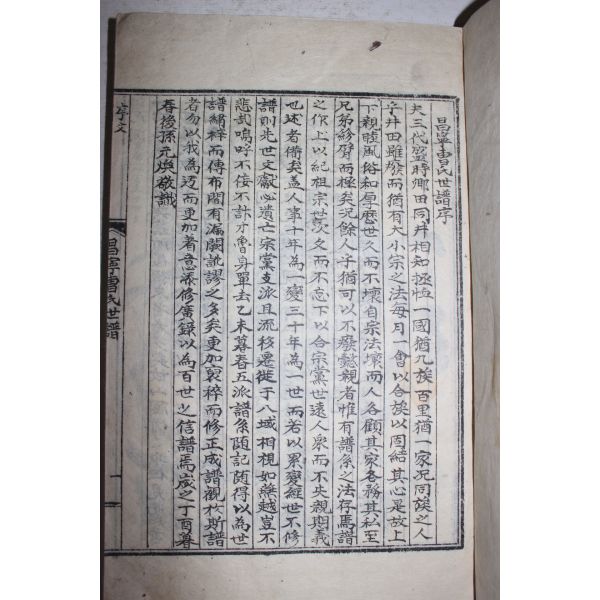 昌寧曺氏世譜序
夫三代盛時鄉田同井相知拯恤一國猶九族百里猶一家況同族之人
乎井田雖廢而猶有大小宗之法每月一會以合族以固結其心是故上
下親睦風俗和厚歷世久而不壞自宗法壞而人各顧其家各務其私至
兄弟紾臂而極矣況餘人乎猶可以不廢懿親者惟有譜系之法存焉譜
之作上以紀祖宗世敘久而不忘下以合宗黨世遠人衆而不失親期義
也述者備矣盖人事十年為一變三十年為一世而若以累變經世不修
譜則先世文獻必遺亡宗黨支派且流移遷徙于八域相視如楚越豈不
悲哉嗚呼不侫不計才魯身單去乙未暮春五派譜系隨記隨得以為世
譜綱梓而傳布間有漏闕訛謬之多矣更加裒稡而修正成譜觀於斯譜
者勿以我為迂而更加着意漲修廣錄以為百世之信譜焉歲之丁酉暮
春後孫元煥敬識
序文
昌寧曺氏世譜
一